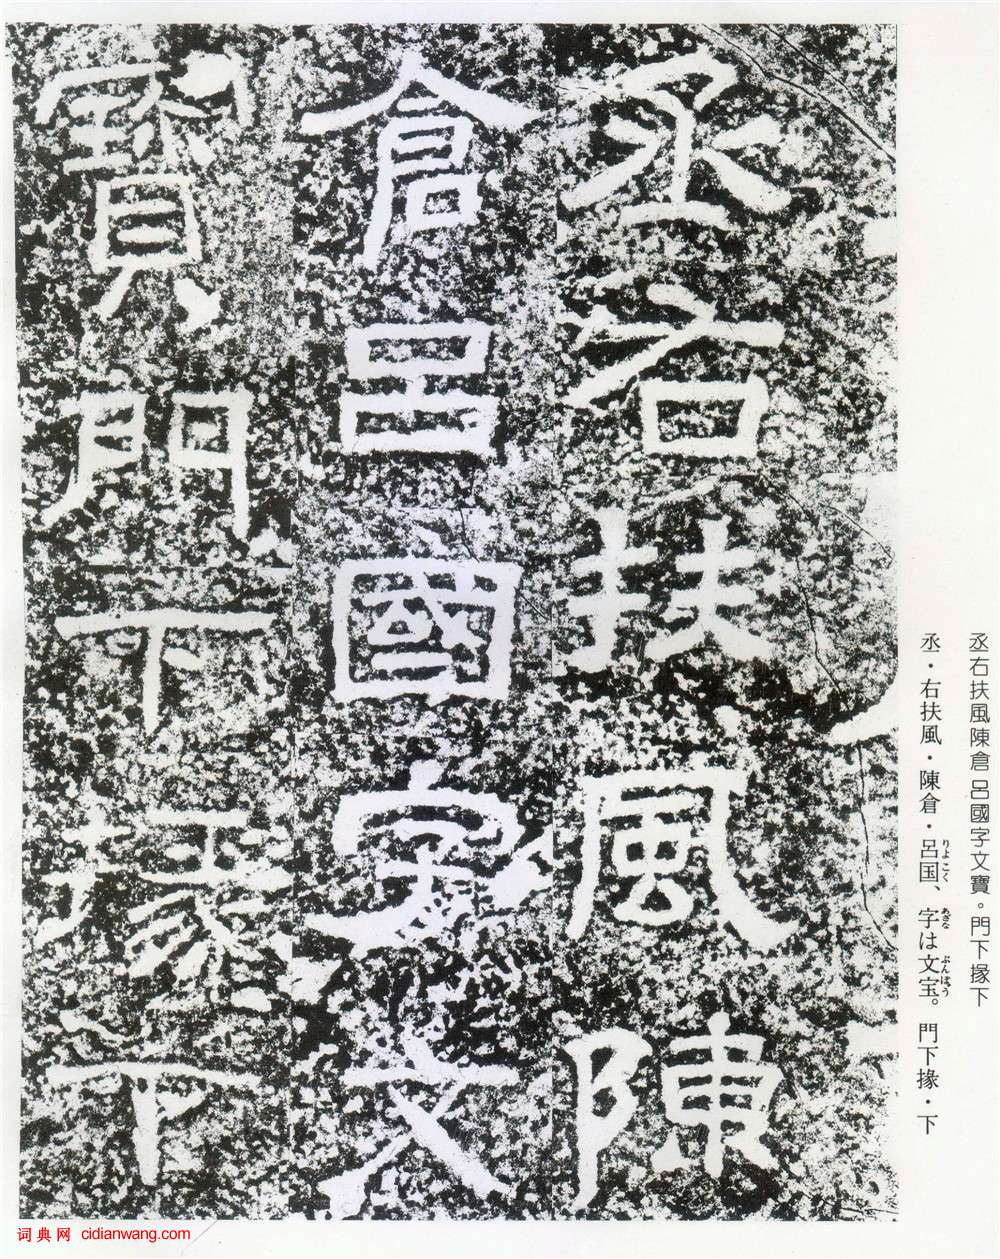 丞右扶風陳
倉呂國字文
寶門下掾下
丞右扶風陳倉呂國字文寶。門下掾下
丞・右扶風・陳倉・呂国、字は文宝。門下掾・下
りよこく
あざな
ぶんぽう
词典网 cidianwang.com